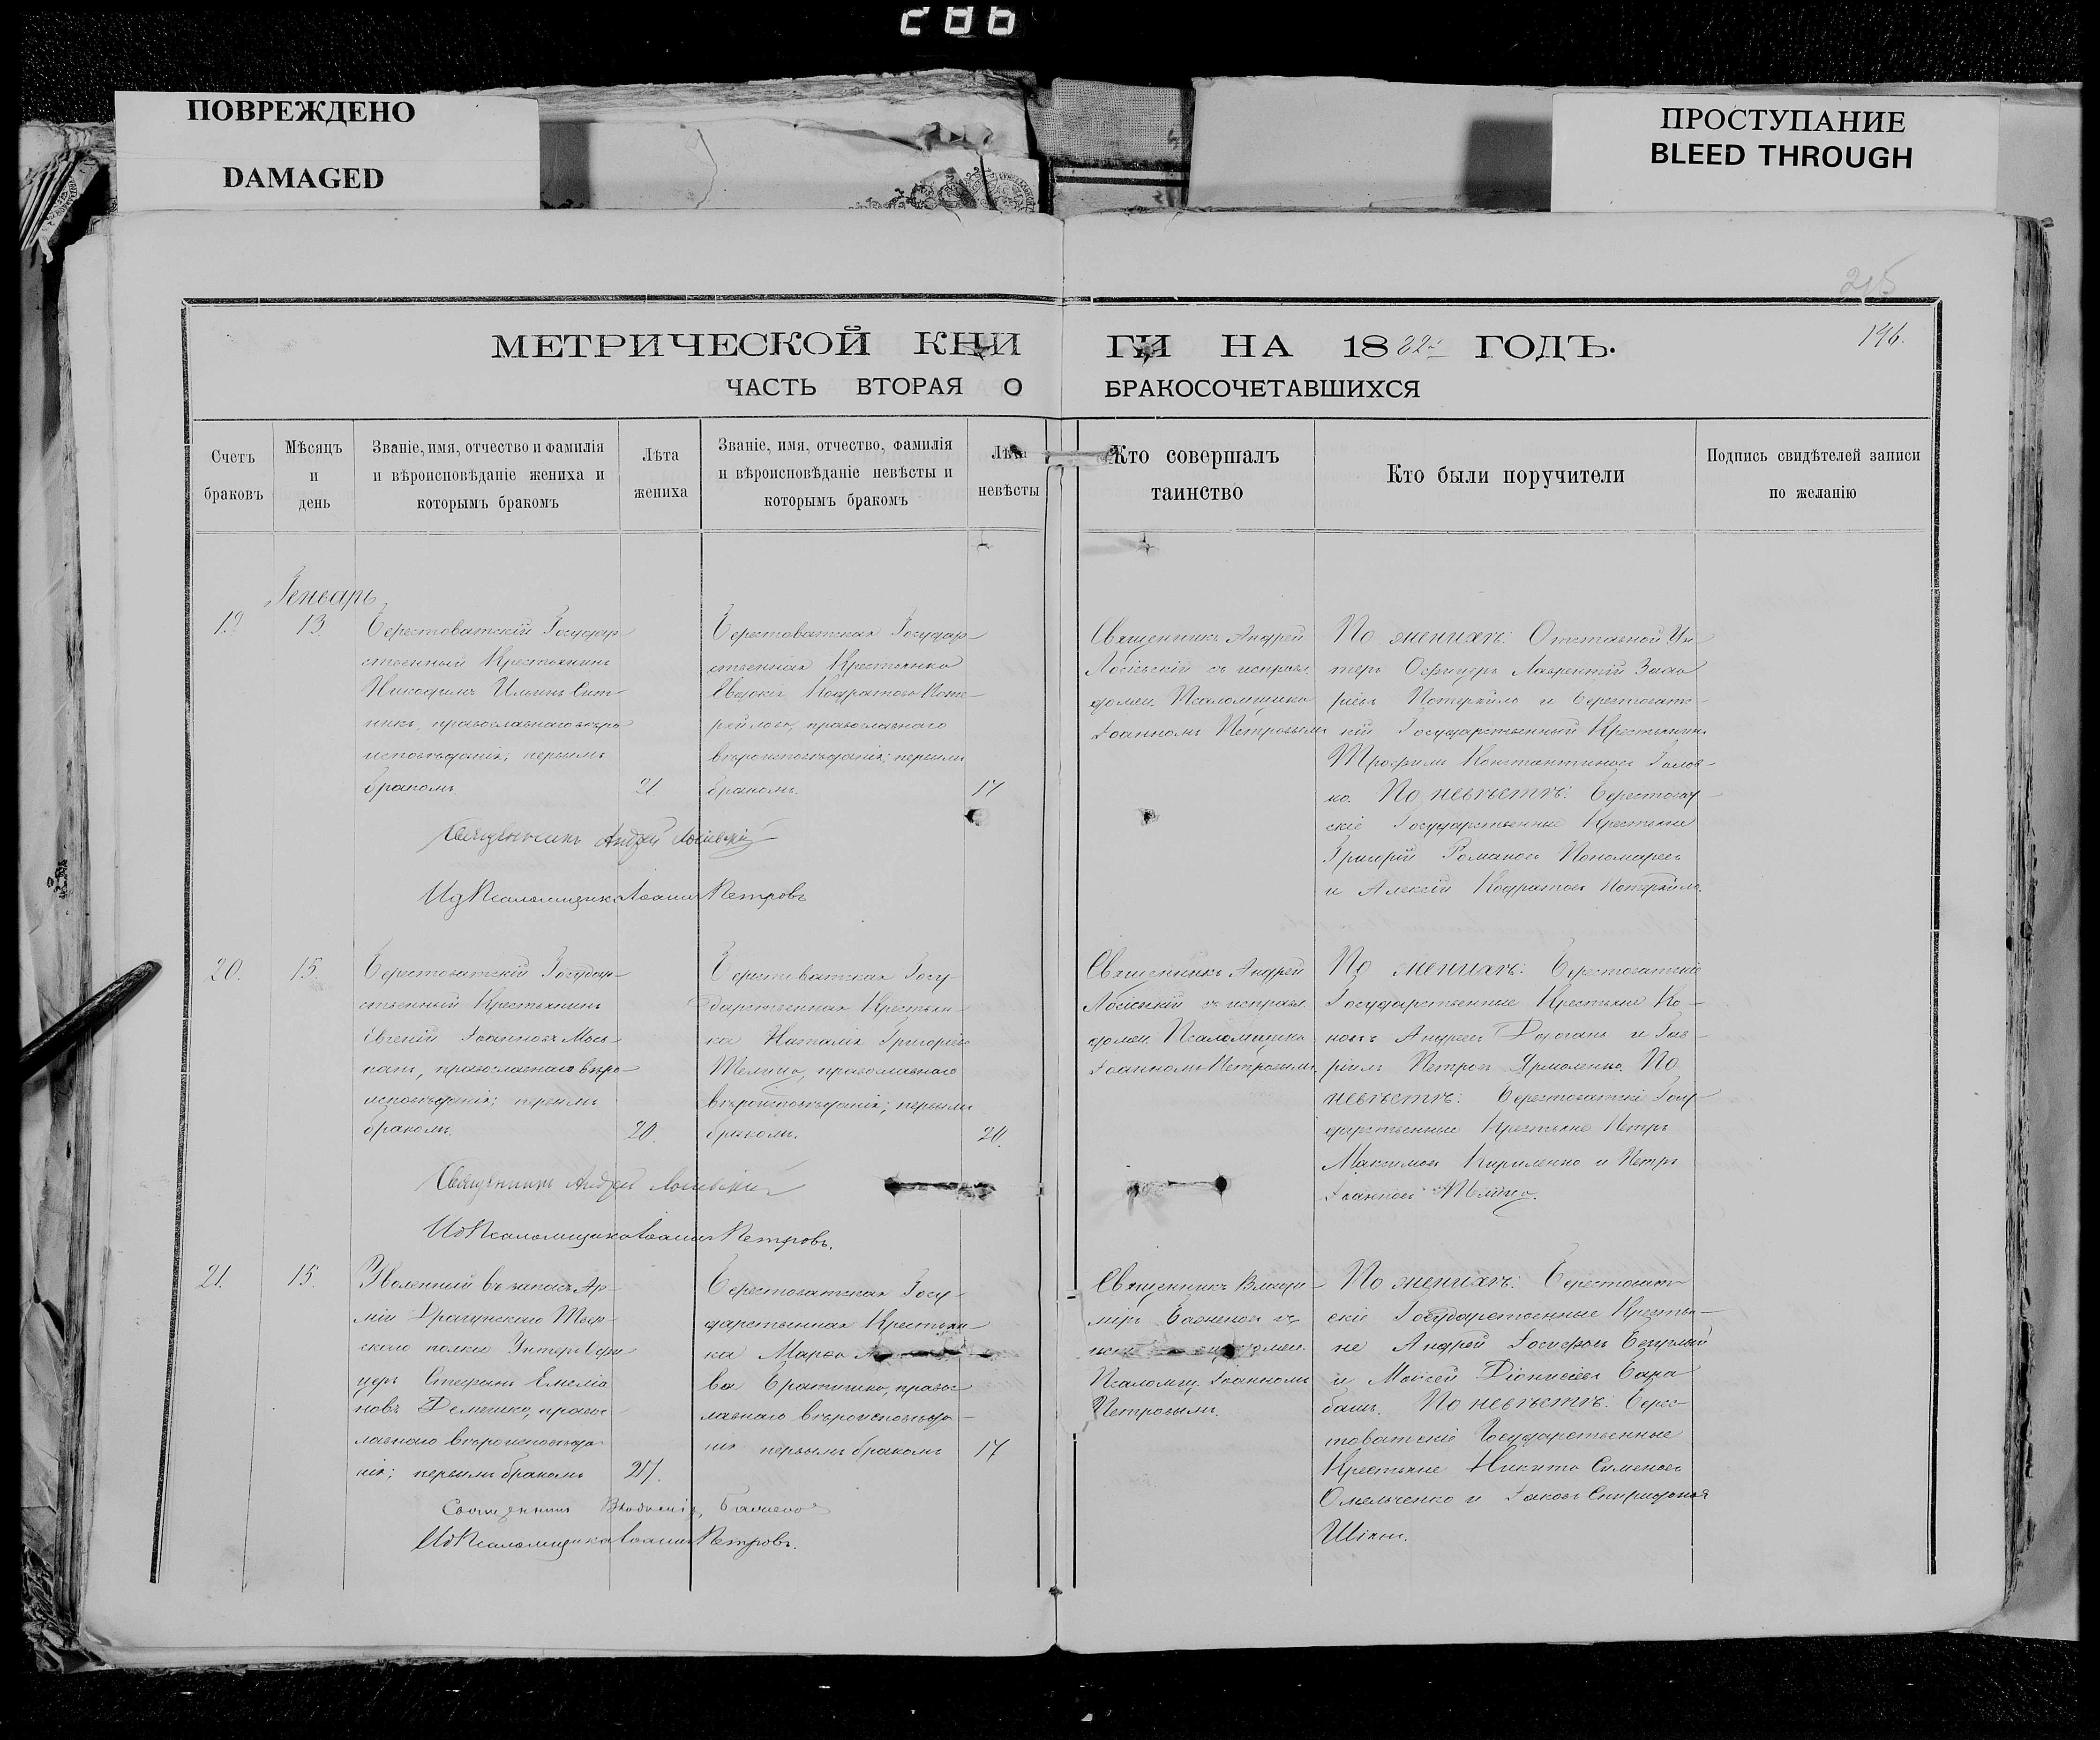 286
ПОВРЕЖДЕНО
DAMAGED
ПРОСТУПАНИЕ
BLEED THROUGH
215
196.
МЕТРИЧЕСКОЙ КНИ ГИ НА 1882 ГОДЪ.
ЧАСТЬ ВТОРАЯ О БРАКОСОЧЕТАВШИХСЯ
Счетъ
браковъ
Мѣсяцъ
и
день
Званіе, имя, отчество и фамилія
и вѣроисповѣданіе жениха и
которымъ бракомъ
Лѣта
жениха
Званіе, имя, отчество, фамилія
и вѣроисповѣданіе невѣсты и
которымъ бракомъ
Лѣта
невѣсты
Кто совершалъ
таинство
Кто были поручители
Подпись свидѣтелей записи
по желанію
Генварь
19
13.
Берестоватскій Государ-
ственный Крестьянинъ
Никодимъ Ильинъ Сит-
никъ, православнаго вѣро-
исповѣданія; первымъ
бракомъ
21.
Берестоватская Государ-
ственная Крестьянка
Евдокія Кодратова Поте-
ряйлова, православнаго
вѣроисповѣданія; первымъ
бракомъ.
17
Священникъ Андрей
съ исправл.
долж. Псаломщика
Іоанномъ Петровымъ
По женихѣ: Отставной Ун-
теръ Офицеръ Лаврентій Заха
ріевъ Потеряйло и Берестоватс-
кій Государственный Крестьянинъ
Трофимъ Константиновъ Голов-
ко. По невѣстѣ: Берестоват-
скіе Государственные Крестьяне
Григорій Романовъ Пономаревъ
и Алексій Кодратовъ Потеряйло.
Священникъ Андрей
Ид Псаломщика Іоаннъ Петровъ
20.
15.
Берестоватскій Государ-
ственный Крестьянинъ
Евгеній Іоанновъ Мос-
панъ, православнаго вѣро-
исповѣданія; первымъ
бракомъ.
20.
Берестоватская Госу-
дарственная Крестьян-
ка Наталія Григоріева
православнаго
вѣроисповѣданія; первымъ
бракомъ.
20.
Священникъ Андрей
съ исправл.
долж. Псаломщика
Іоанномъ Петровымъ.
По женихѣ: Берестоватскіе
Государственные Крестьяне Ко-
нонъ Андреевъ и Гав-
ріилъ Петровъ Ярмоленко. По
невѣстѣ: Берестоватскіе Госу-
дарственные Крестьяне Петръ
Максимовъ Кириленко и Петръ
Іоанновъ
Священникъ Андрей
Ид Псаломщика Іоаннъ Петровъ.
21.
15.
Уволенный въ запасъ Ар-
міи Драгунскаго Твер-
скаго полка Унтеръ Офи
церъ Стефанъ Емеліа
новъ Демешко, право-
славнаго вѣроисповѣда
нія; первымъ бракомъ
27.
Берестоватская Госу-
дарственная Крестьян-
ка Марѳа
ва православ
лавнаго вѣроисповѣда-
нія первымъ бракомъ
17
Священникъ Влади-
міръ Баженовъ съ
долж.
Псаломщ. Іоанномъ
Петровымъ.
По женихѣ: Берестоват-
скіе Государственные Крестья-
не Андрей Іосифовъ
и Моисей Діонисіевъ Бара
башъ. По невѣстѣ: Берес-
товатскіе Государственные
Крестьяне Никита Симеоновъ
Омельченко и Іаковъ Спиридоновъ
Священникъ Владиміръ Баженовъ
Ид Псаломщика Іоаннъ Петровъ.